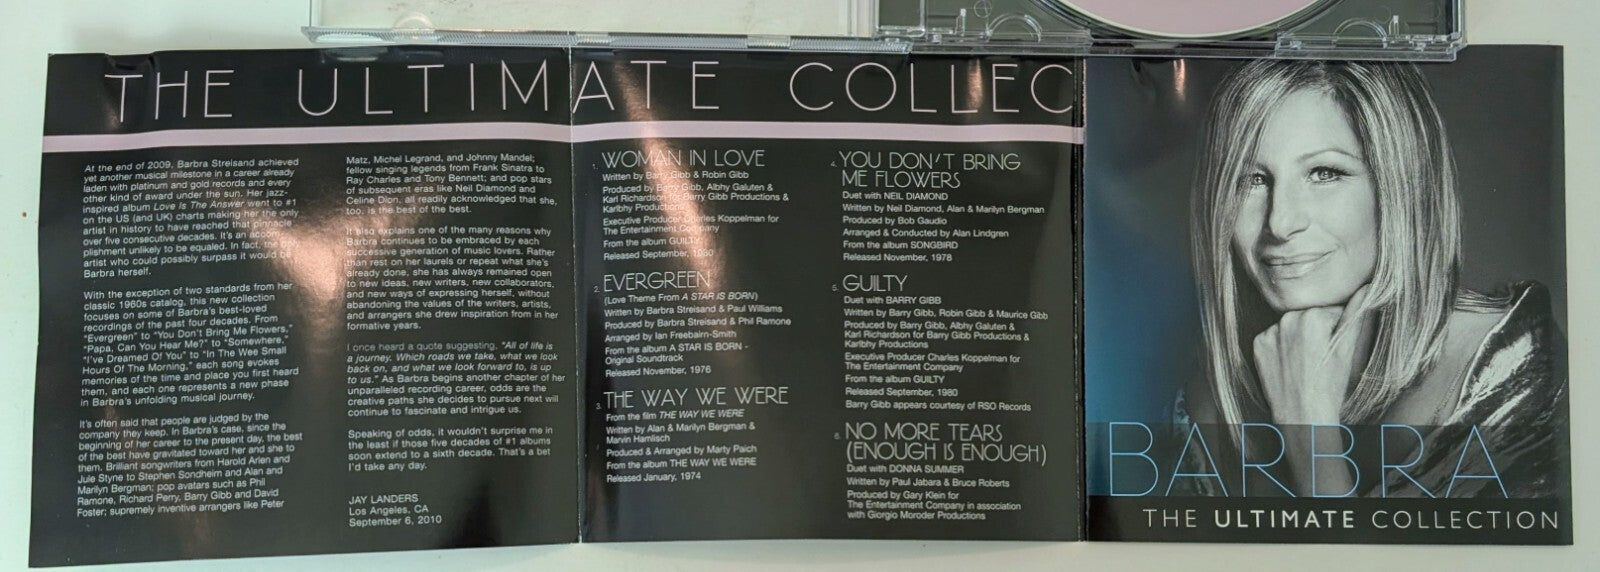 THE ULTIMATE COLLEC
At the end of 2009, Barbra Streisand achieved
yet another musical milestone in a career already
laden with platinum and gold records and every
other kind of award under the sun. Her jazz-
inspired album Love Is The Answer went to #1
on the US (and UK) charts making her the only
artist in history to have reached that pinnacle
over five consecutive decades. It's an accom-
plishment unlikely to be equaled. In fact, the only
artist who could possibly surpass it would be
Barbra herself.
With the exception of two standards from her
classic 1960s catalog, this new collection
focuses on some of Barbra's best-loved
recordings of the past four decades. From
"Evergreen" to "You Don't Bring Me Flowers,"
"Papa, Can You Hear Me?" to "Somewhere,"
"I've Dreamed Of You" to "In The Wee Small
Hours Of The Morning," each song evokes
memories of the time and place you first heard
them, and each one represents a new phase
in Barbra's unfolding musical journey.
It's often said that people are judged by the
company they keep. In Barbra's case, since the
beginning of her career to the present day, the best
of the best have gravitated toward her and she to
them. Brilliant songwriters from Harold Arlen and
Jule Styne to Stephen Sondheim and Alan and
Marilyn Bergman; pop avatars such as Phil
Ramone, Richard Perry, Barry Gibb and David
Foster; supremely inventive arrangers like Peter
Matz, Michel Legrand, and Johnny Mandel;
fellow singing legends from Frank Sinatra to
Ray Charles and Tony Bennett; and pop stars
of subsequent eras like Neil Diamond and
Celine Dion, all readily acknowledged that she,
too, is the best of the best.
It also explains one of the many reasons why
Barbra continues to be embraced by each
successive generation of music lovers. Rather
than rest on her laurels or repeat what she's
already done, she has always remained open
to new ideas, new writers, new collaborators,
and new ways of expressing herself, without
abandoning the values of the writers, artists,
and arrangers she drew inspiration from in her
formative years.
I once heard a quote suggesting, "All of life is
a journey. Which roads we take, what we look
back on, and what we look forward to, is up
to us." As Barbra begins another chapter of her
unparalleled recording career, odds are the
creative paths she decides to pursue next will
continue to fascinate and intrigue us.
Speaking of odds, it wouldn't surprise me in
the least if those five decades of #1 albums
soon extend to a sixth decade. That's a bet
I'd take any day.
JAY LANDERS
Los Angeles, CA
September 6, 2010
1. WOMAN IN LOVE
Written by Barry Gibb & Robin Gibb
Produced by Barry Gibb, Albhy Galuten &
Karl Richardson for Barry Gibb Productions &
Karlbhy Productions
Executive Producer Charles Koppelman for
The Entertainment Company
From the album GUILTY
Released September, 1980
2. EVERGREEN
(Love Theme From A STAR IS BORN)
Written by Barbra Streisand & Paul Williams
Produced by Barbra Streisand & Phil Ramone
Arranged by Ian Freebairn-Smith
From the album A STAR IS BORN -
Original Soundtrack
Released November, 1976
3. THE WAY WE WERE
From the film THE WAY WE WERE
Written by Alan & Marilyn Bergman &
Marvin Hamlisch
Produced & Arranged by Marty Paich
From the album THE WAY WE WERE
Released January, 1974
4. YOU DON'T BRING
ME FLOWERS
Duet with NEIL DIAMOND
Written by Neil Diamond, Alan & Marilyn Bergman
Produced by Bob Gaudio
Arranged & Conducted by Alan Lindgren
From the album SONGBIRD
Released November, 1978
5. GUILTY
Duet with BARRY GIBB
Written by Barry Gibb, Robin Gibb & Maurice Gibb
Produced by Barry Gibb, Albhy Galuten &
Karl Richardson for Barry Gibb Productions &
Karlbhy Productions
Executive Producer Charles Koppelman for
The Entertainment Company
From the album GUILTY
Released September, 1980
Barry Gibb appears courtesy of RSO Records
6. NO MORE TEARS
(ENOUGH IS ENOUGH)
Duet with DONNA SUMMER
Written by Paul Jabara & Bruce Roberts
Produced by Gary Klein for
The Entertainment Company in association
with Giorgio Moroder Productions
BARBRA
THE ULTIMATE COLLECTION